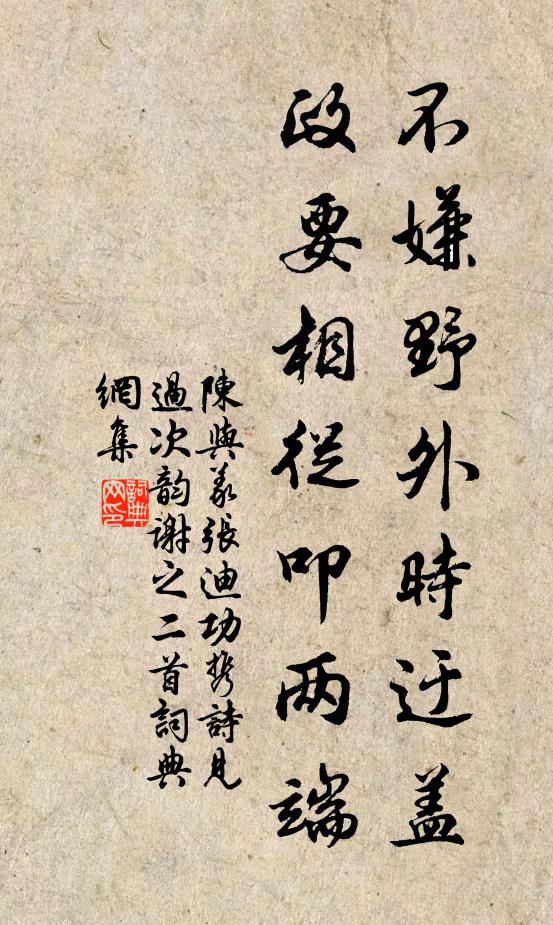 不嫌野外時迂盖
政要相従叩两端
陳與義張迪功携詩見
過次韵謝之二首詞典
網集
詞典网印